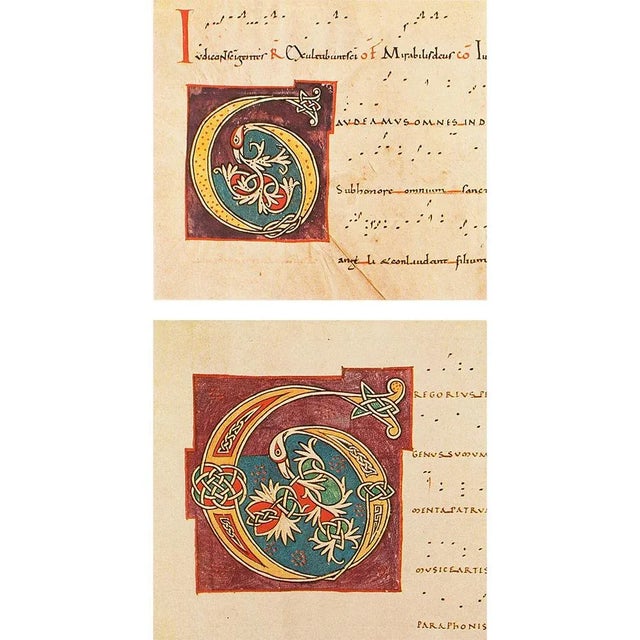 Iudiconseigentes R Exultabuntsci of Mirabilisdeus co Iu
GAUDEAMUSOMNES IN D
Subhonore omnium sanc
angeli &conlaudant filium
GREGORIUS P
GENUS SUMUM
MENTA PATRU
MUSICE ARTIS
PARAPHONIS